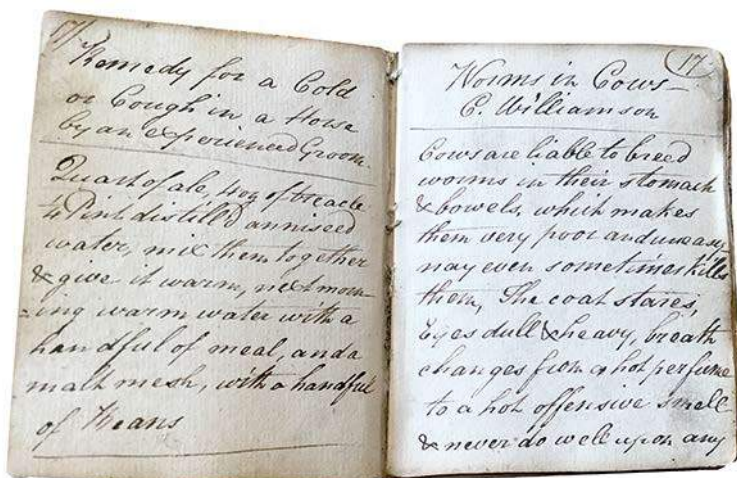 17
Remedy for a Cold
or Cough in a Horse
by an experienced Groom.
Quart of ale, 4 oz of treacle
¼ Pint distill'd anniseed
water, mix them together
& give it warm, next morn-
=ing warm water with a
handful of meal, and a
malt mesh, with a handful
of Beans
17
Worms in Cows—
C. Williamson
Cows are liable to breed
worms in their stomach
& bowels, which makes
them very poor and uneasy
nay even sometimes kills
them, The coat stares,
Eyes dull & heavy, breath
changes from a hot perfume
to a hot offensive smell
& never do well upon any